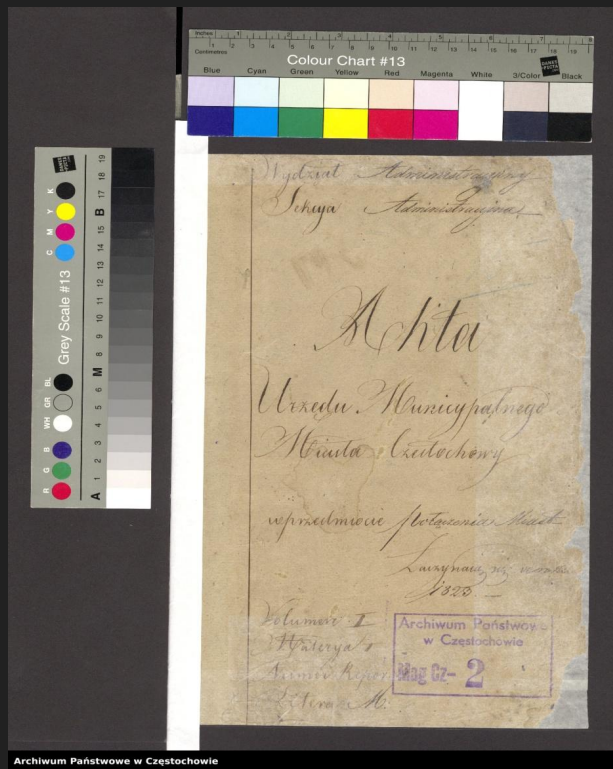 Inches 1 2 3 4 5 6 7 8
Centimetres 1 2 3 4 5 6 7 8 9 10 11 12 13 14 15 16 17 18 19
Colour Chart #13
Blue Cyan Green Yellow Red Magenta White 3/Color Black
DANES PICTA
Grey Scale #13
C M Y K
R G B WH GR BL
A 1 2 3 4 5 6 M 8 9 10 11 12 13 14 15 B 17 18 19
Wydział Administracyjny
Sekcya Administracyjna
Akta
Urzędu Municypalnego
Miasta Częstochowy
w przedmiocie połączenia Miast
Zaczynają się
1823.
Volumen I
Materya
Litera M.
Archiwum Państwowe
w Częstochowie
Mag Cz- 2
Archiwum Państwowe w Częstochowie